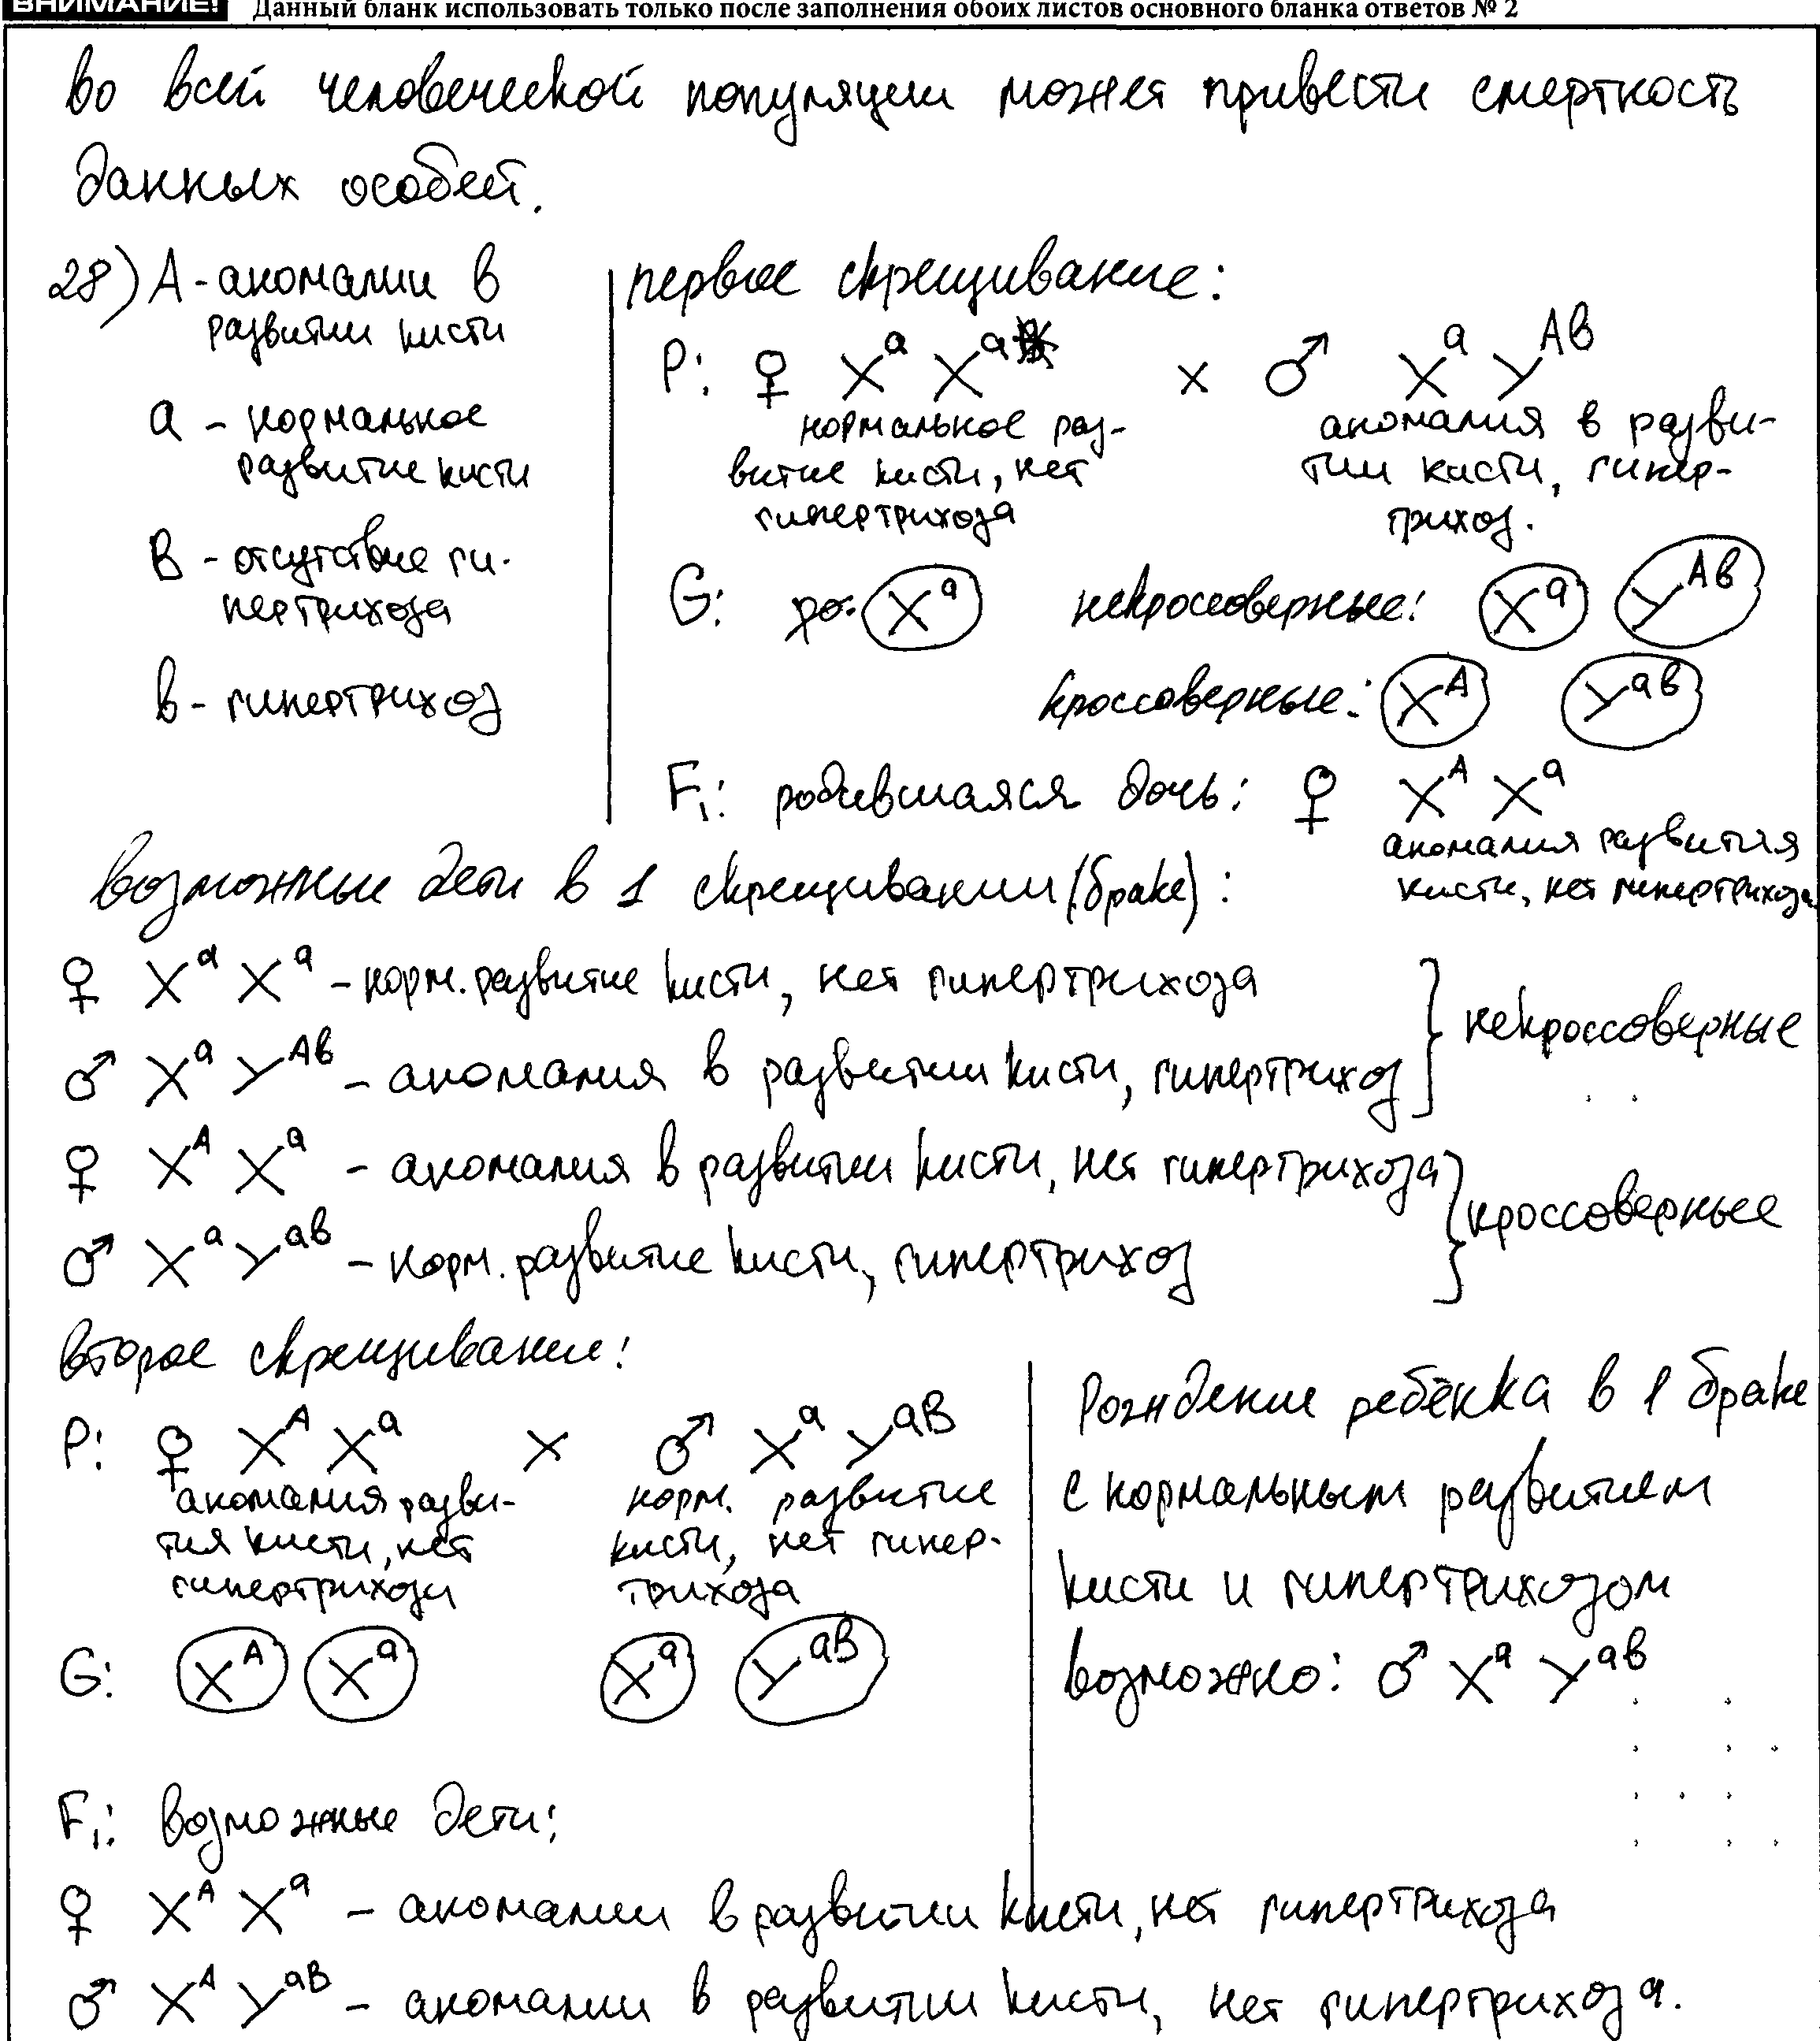 ВНИМАНИЕ! Данный бланк использовать только после заполнения обоих листов основного бланка ответов № 2
во всей человеческой популяции может привести смертность
данных особей.
28) А - аномалии в
развитии кисти
а - нормальное
развитие кисти
В - отсутствие ги-
пертрихоза
в - гипертрихоз
первое скрещивание:
Р: ♀ Xᵃ Xᵃ х ♂ Xᵃ Yᴬᵇ
нормальное раз-
витие кисти, нет
гипертрихоза
аномалия в разви-
тии кисти, гипер-
трихоз.
G: Xᵃ некроссоверные: Xᵃ Yᴬᵇ
кроссоверные: Xᴬ Yᵃᵇ
F₁: родившаяся дочь: ♀ Xᴬ Xᵃ
аномалия развития
кисти, нет гипертрихоза
возможные дети в 1 скрещивании (браке):
♀ Xᵃ Xᵃ - норм. развитие кисти, нет гипертрихоза
♂ Xᵃ Yᴬᵇ - аномалия в развитии кисти, гипертрихоз
некроссоверные
♀ Xᴬ Xᵃ - аномалия в развитии кисти, нет гипертрихоза
♂ Xᵃ Yᵃᵇ - норм. развитие кисти, гипертрихоз
кроссоверные
второе скрещивание:
Р: ♀ Xᴬ Xᵃ х ♂ Xᵃ Yᵃᴮ
аномалия разви-
тия кисти, нет
гипертрихоза
норм. развитие
кисти, нет гипер-
трихоза
G: Xᴬ Xᵃ Xᵃ Yᵃᴮ
Рождение ребёнка в 1 браке
с нормальным развитием
кисти и гипертрихозом
возможно: ♂ Xᵃ Yᵃᵇ
F₁: возможные дети:
♀ Xᴬ Xᵃ - аномалии в развитии кисти, нет гипертрихоза
♂ Xᴬ Yᵃᴮ - аномалии в развитии кисти, нет гипертрихоза.